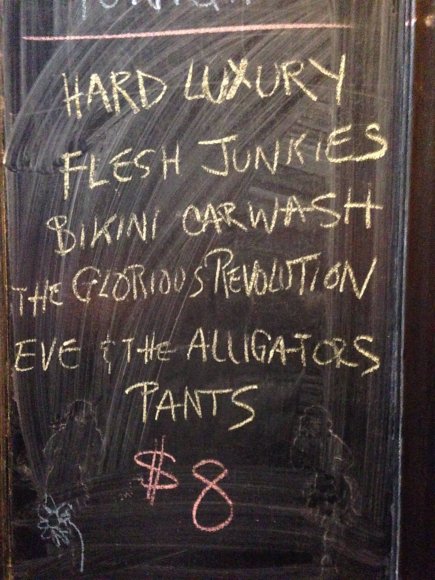 HARD LUXURY
FLESH JUNKIES
BIKINI CARWASH
THE GLORIOUS REVOLUTION
EVE & THE ALLIGATORS
PANTS
$8